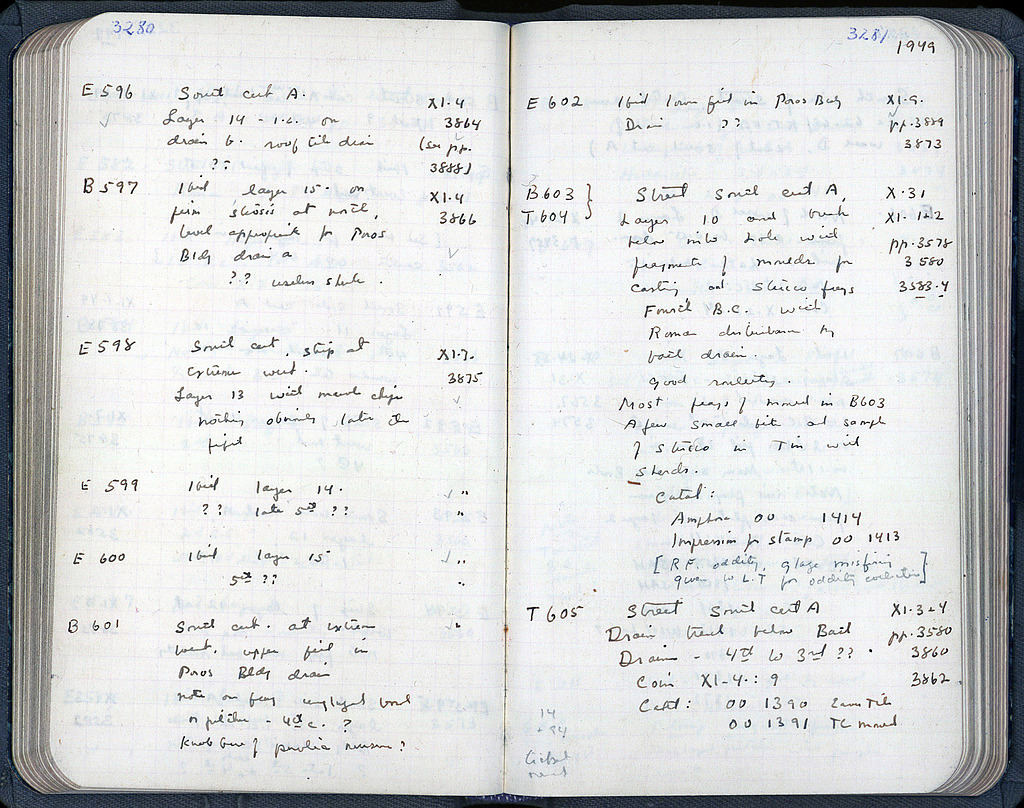 3280
E 596 South cut A. XI.4
Layer 14 - i.e. on 3864
drain b. roof tile drain (see pp.
?? 3888)
B 597 Ibid layer 15. on XI.4
firm stosis at north, 3866
level appropriate for Poros
Bldg drain a
?? useless sherds.
E 598 South cut, strip at XI.7.
extreme west. 3875
Layer 13 with marble chips
nothing obviously later than
fifth
E 599 Ibid layer 14. "
?? late 5th ?? "
E 600 Ibid layer 15 "
5th ?? "
B 601 South cut. at extreme "
west. upper fill in
Poros Bldg drain
note on frag unglazed bowl
or pitcher - 4th c. ?
Knob one of public measure?
3281
1949
E 602 Ibid lower fill in Poros Bldg XI.9.
Drain ?? pp. 3889
3873
B 603 } Street South cut A, X.31
T 604 Layer 10 and trench XI.1+2
below into hole with pp. 3578
fragments of moulds for 3580
casting and stucco frags 3583.4
Fourth B.C. with
Roman disturbance by
bath drain.
good rouletting.
Most frags of mould in B603
A few small bits and sample
of stucco in Tin with
sherds.
Catal:
Amphora OO 1414
Impression for stamp OO 1413
[R.F. oddity, glaze misfiring
given to L.T for oddity collection]
T 605 Street South cut A XI.3+4
Drain trench below Bath pp. 3580
Drain - 4th to 3rd ?? . 3860
Coin XI-4.: 9 3862.
Catal: OO 1390 Tile
OO 1391 TC mould
14
+ 94